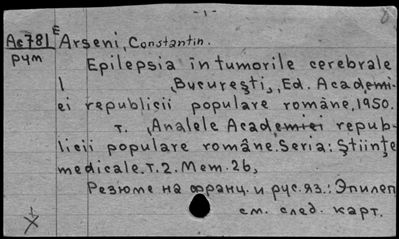 -1-
Ас781 E Arseni, Constantin.
рум
Epilepsia în tumorile cerebrale
I , București, Ed. Academi-
ei republicii populare române, 1950.
т. , Analele Academiei repub-
licii populare române. Seria: Științe
medicale. T. 2. Mem. 26,
Резюме на франц. и рус. яз.: Эпилеп
см. след. карт.
X